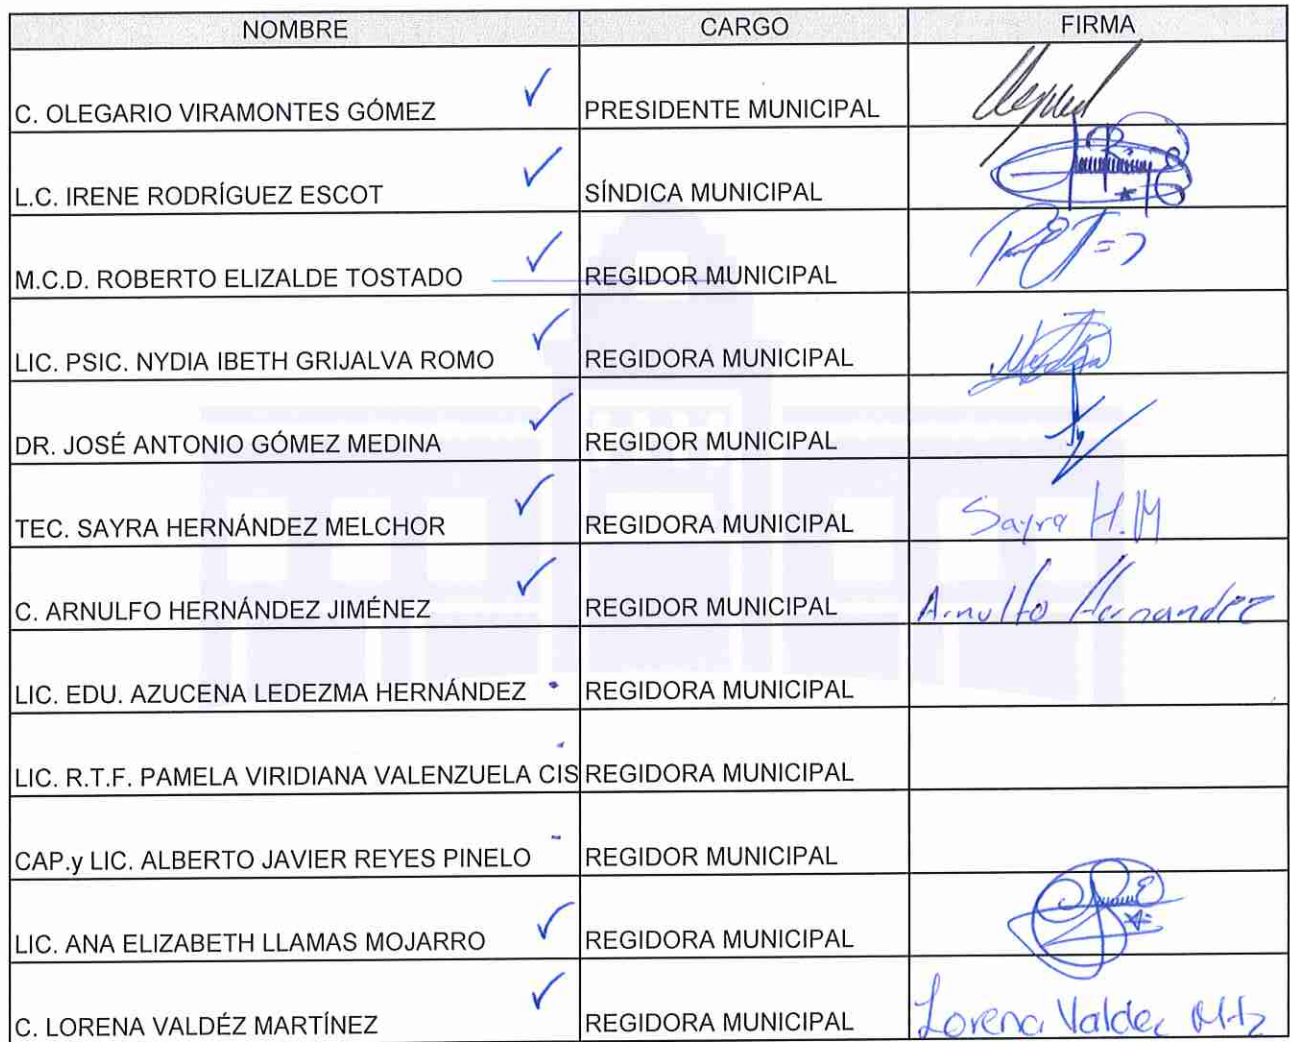 NOMBRE CARGO FIRMA
C. OLEGARIO VIRAMONTES GÓMEZ PRESIDENTE MUNICIPAL
L.C. IRENE RODRÍGUEZ ESCOT SÍNDICA MUNICIPAL
M.C.D. ROBERTO ELIZALDE TOSTADO REGIDOR MUNICIPAL
LIC. PSIC. NYDIA IBETH GRIJALVA ROMO REGIDORA MUNICIPAL
DR. JOSÉ ANTONIO GÓMEZ MEDINA REGIDOR MUNICIPAL
TEC. SAYRA HERNÁNDEZ MELCHOR REGIDORA MUNICIPAL Sayra H.M
C. ARNULFO HERNÁNDEZ JIMÉNEZ REGIDOR MUNICIPAL Arnulfo Hernandez
LIC. EDU. AZUCENA LEDEZMA HERNÁNDEZ REGIDORA MUNICIPAL
LIC. R.T.F. PAMELA VIRIDIANA VALENZUELA CIS REGIDORA MUNICIPAL
CAP.y LIC. ALBERTO JAVIER REYES PINELO REGIDOR MUNICIPAL
LIC. ANA ELIZABETH LLAMAS MOJARRO REGIDORA MUNICIPAL
C. LORENA VALDÉZ MARTÍNEZ REGIDORA MUNICIPAL Lorena Valdez Mtz